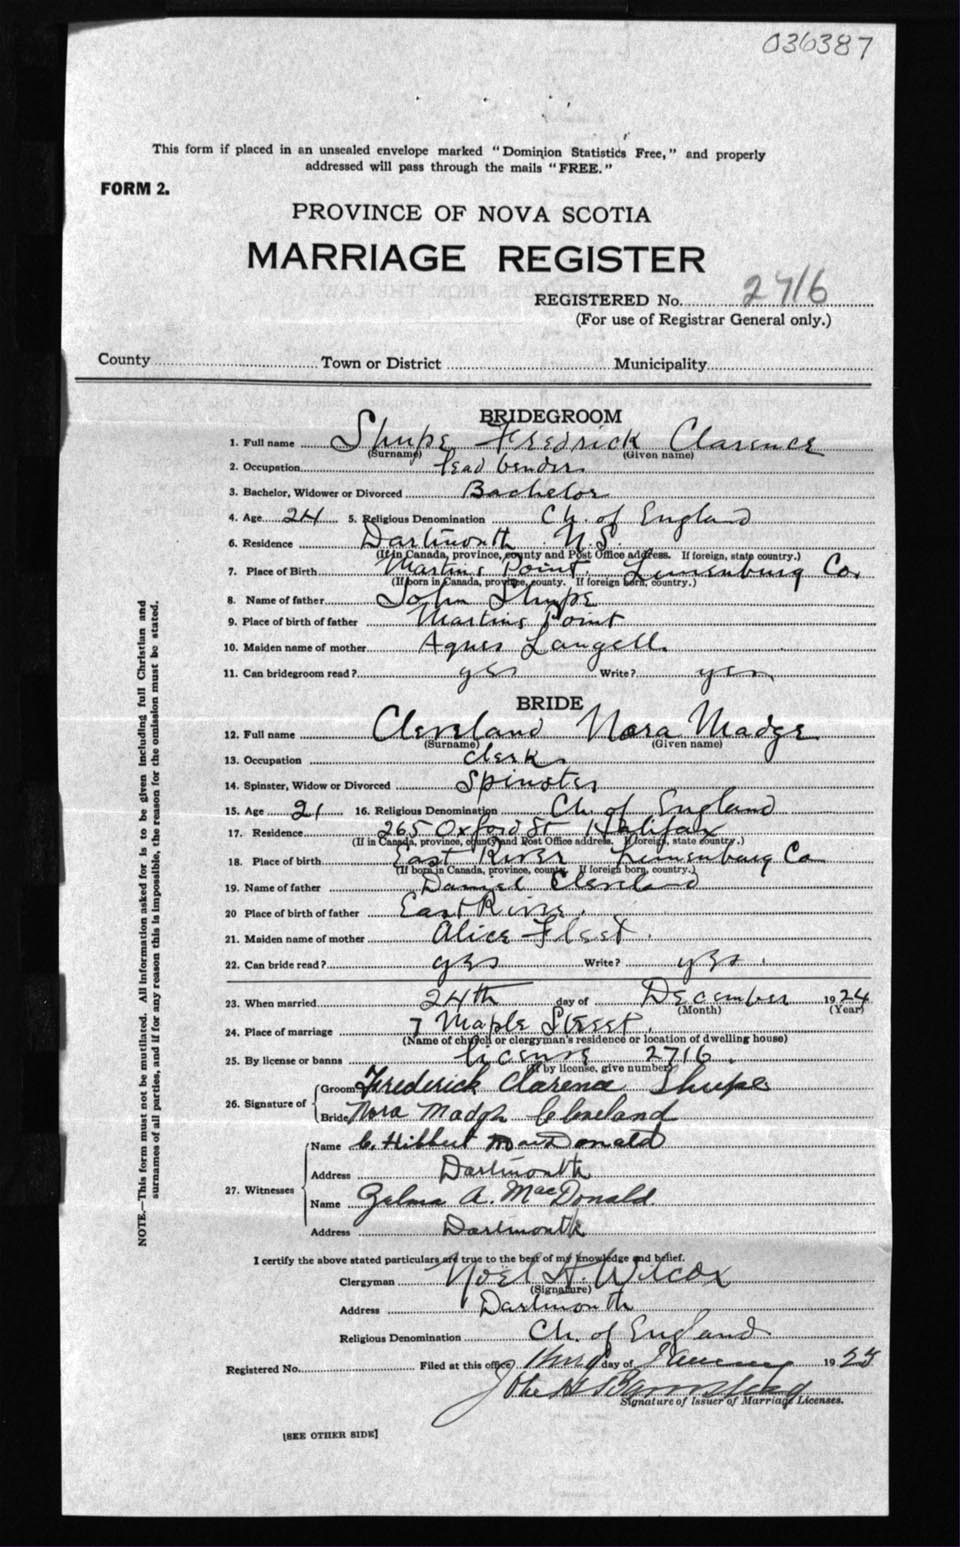 036387
This form if placed in an unsealed envelope marked "Dominion Statistics Free," and properly
addressed will pass through the mails "FREE."
FORM 2.
PROVINCE OF NOVA SCOTIA
MARRIAGE REGISTER
REGISTERED No. 2716
(For use of Registrar General only.)
County Town or District Municipality
BRIDEGROOM
1. Full name Shupe Fredrick Clarence
(Surname) (Given name)
2. Occupation
3. Bachelor, Widower or Divorced Bachelor
4. Age 24 5. Religious Denomination Ch. of England
6. Residence Dartmouth N.S.
(If in Canada, province, county and Post Office address. If foreign, state country.)
7. Place of Birth Martins Point Lunenburg Co.
(If born in Canada, province, county. If foreign born, country.)
8. Name of father John Shupe
9. Place of birth of father Martins Point
10. Maiden name of mother Agnes Langell
11. Can bridegroom read? yes Write? yes
BRIDE
12. Full name Cleveland Nora Madge
(Surname) (Given name)
13. Occupation Clerk
14. Spinster, Widow or Divorced Spinster
15. Age 21 16. Religious Denomination Ch. of England
17. Residence 265 Oxford St Halifax
(If in Canada, province, county and Post Office address. If foreign, state country.)
18. Place of birth East River Lunenburg Co
(If born in Canada, province, county. If foreign born, country.)
19. Name of father Daniel Cleveland
20 Place of birth of father East River.
21. Maiden name of mother Alice Fleet.
22. Can bride read? yes Write? yes.
23. When married 24th day of December 1924
(Month) (Year)
24. Place of marriage 7 Maple Street.
(Name of church or clergyman's residence or location of dwelling house)
25. By license or banns license 2716.
(If by license, give number)
26. Signature of Groom Frederick Clarence Shupe
Bride Nora Madge Cleveland
27. Witnesses Name C. Hibbert MacDonald
Address Dartmouth
Name Zelma A. MacDonald
Address Dartmouth
I certify the above stated particulars are true to the best of my knowledge and belief.
Clergyman Noël H. Wilcox
(Signature)
Address Dartmouth
Religious Denomination Ch. of England
Registered No. Filed at this office day of 192
Signature of Issuer of Marriage Licenses.
[SEE OTHER SIDE]
NOTE.—This form must not be mutilated. All information asked for is to be given including full Christian and
surnames of all parties, and if for any reason this is impossible, the reason for the omission must be stated.